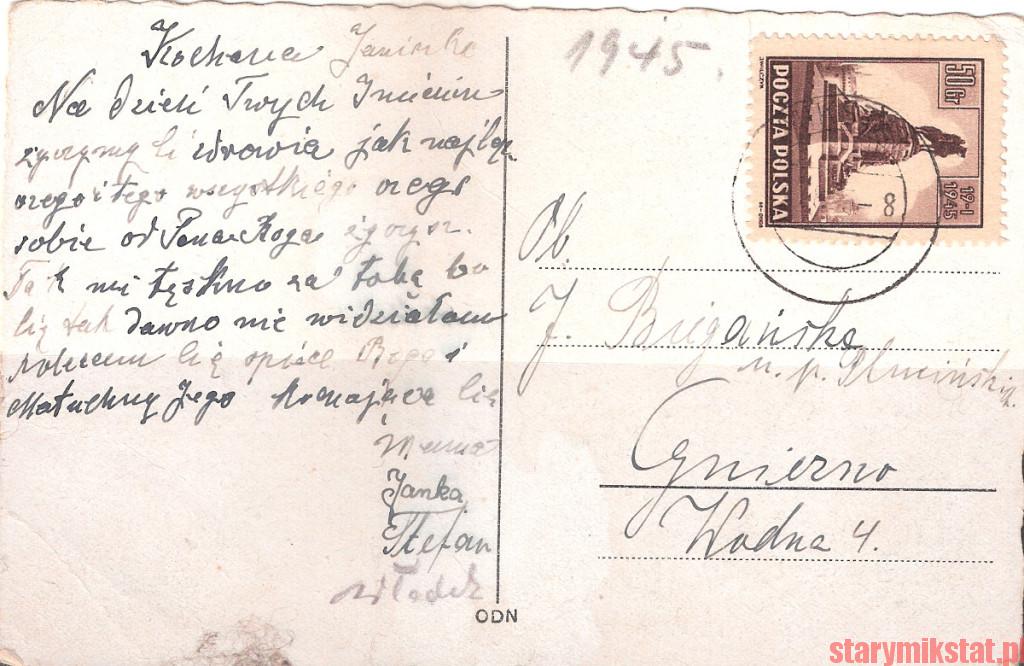 Kochana Janinko
Na dzień Twych Imienin
życzymy Ci zdrowia jak najlep
szego i tego wszystkiego czego
sobie od Pana Boga życzysz.
Tak mi tęskno za tobą bo
Cię tak dawno nie widziałam
polecam Cię opiece Boga i
Matuchny Jego kochająca Cię
Mama
Janka
Stefan
Władek
ODN
1945.
50 Gr
POCZTA POLSKA
19-I
1945
8
Ob.
J. Biegańska
u. p.
Gniezno
Wodna 4.
starymikstat.pl